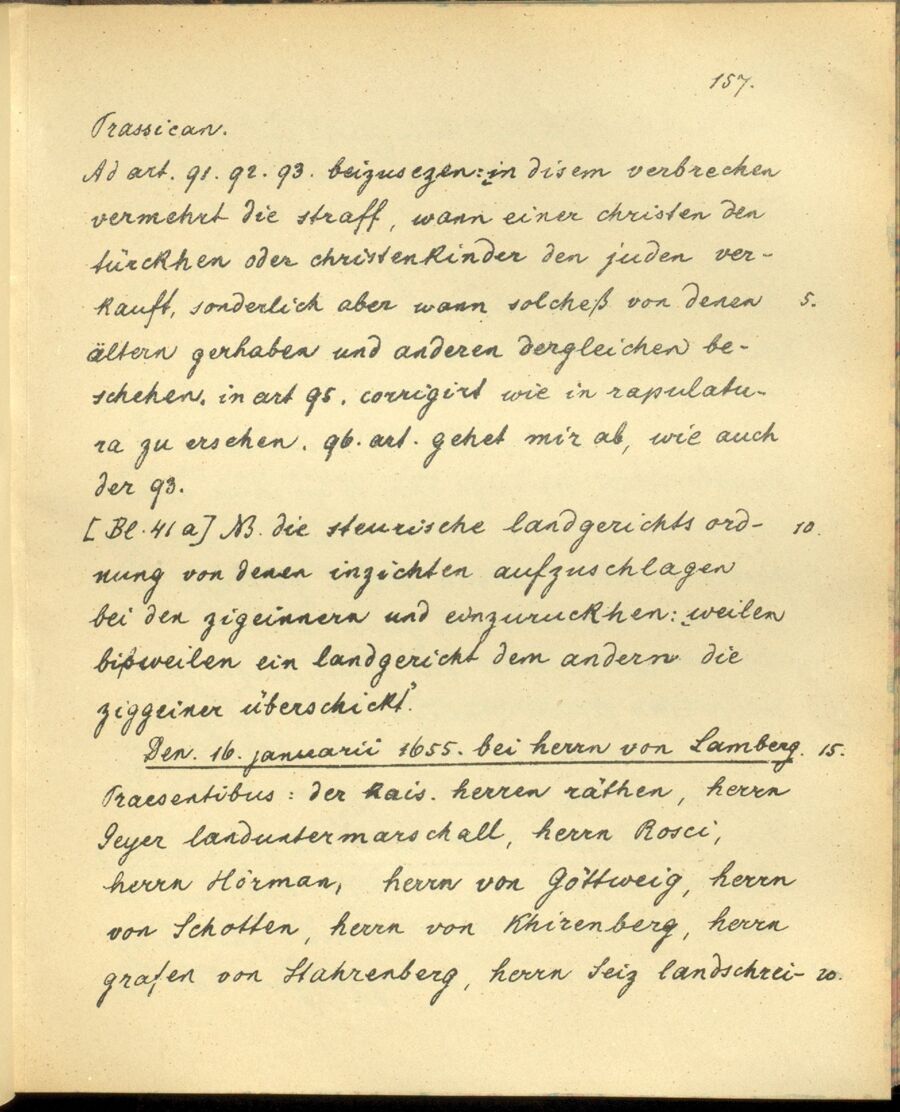 157.
Trassican.
Ad art. 91. 92. 93. beizusezen: in disem verbrechen
vermehrt die straff, wann einer christen den
türckhen oder christenkinder den juden ver-
kauft, sonderlich aber wann solcheß von denen 5.
ältern gerhaben und anderen dergleichen be-
schehen. in art 95. corrigirt wie in rapulatu-
ra zu ersehen. 96. art. gehet mir ab, wie auch
der 93.
[Bl. 41 a] NB. die steurische landgerichts ord- 10.
nung von denen inzichten aufzuschlagen
bei den zigeinnern und einzuruckhen: weilen
bißweilen ein landgericht dem andern die
ziggeiner überschickt.
Den. 16. januarii 1655. bei herrn von Lamberg. 15.
Praesentibus: der kais. herren räthen, herrn
Geyer landuntermarschall, herrn Rosci,
herrn Hörman, herrn von Göttweig, herrn
von Schotten, herrn von Khirenberg, herrn
grafen von Stahrenberg, herrn Seiz landschrei- 20.